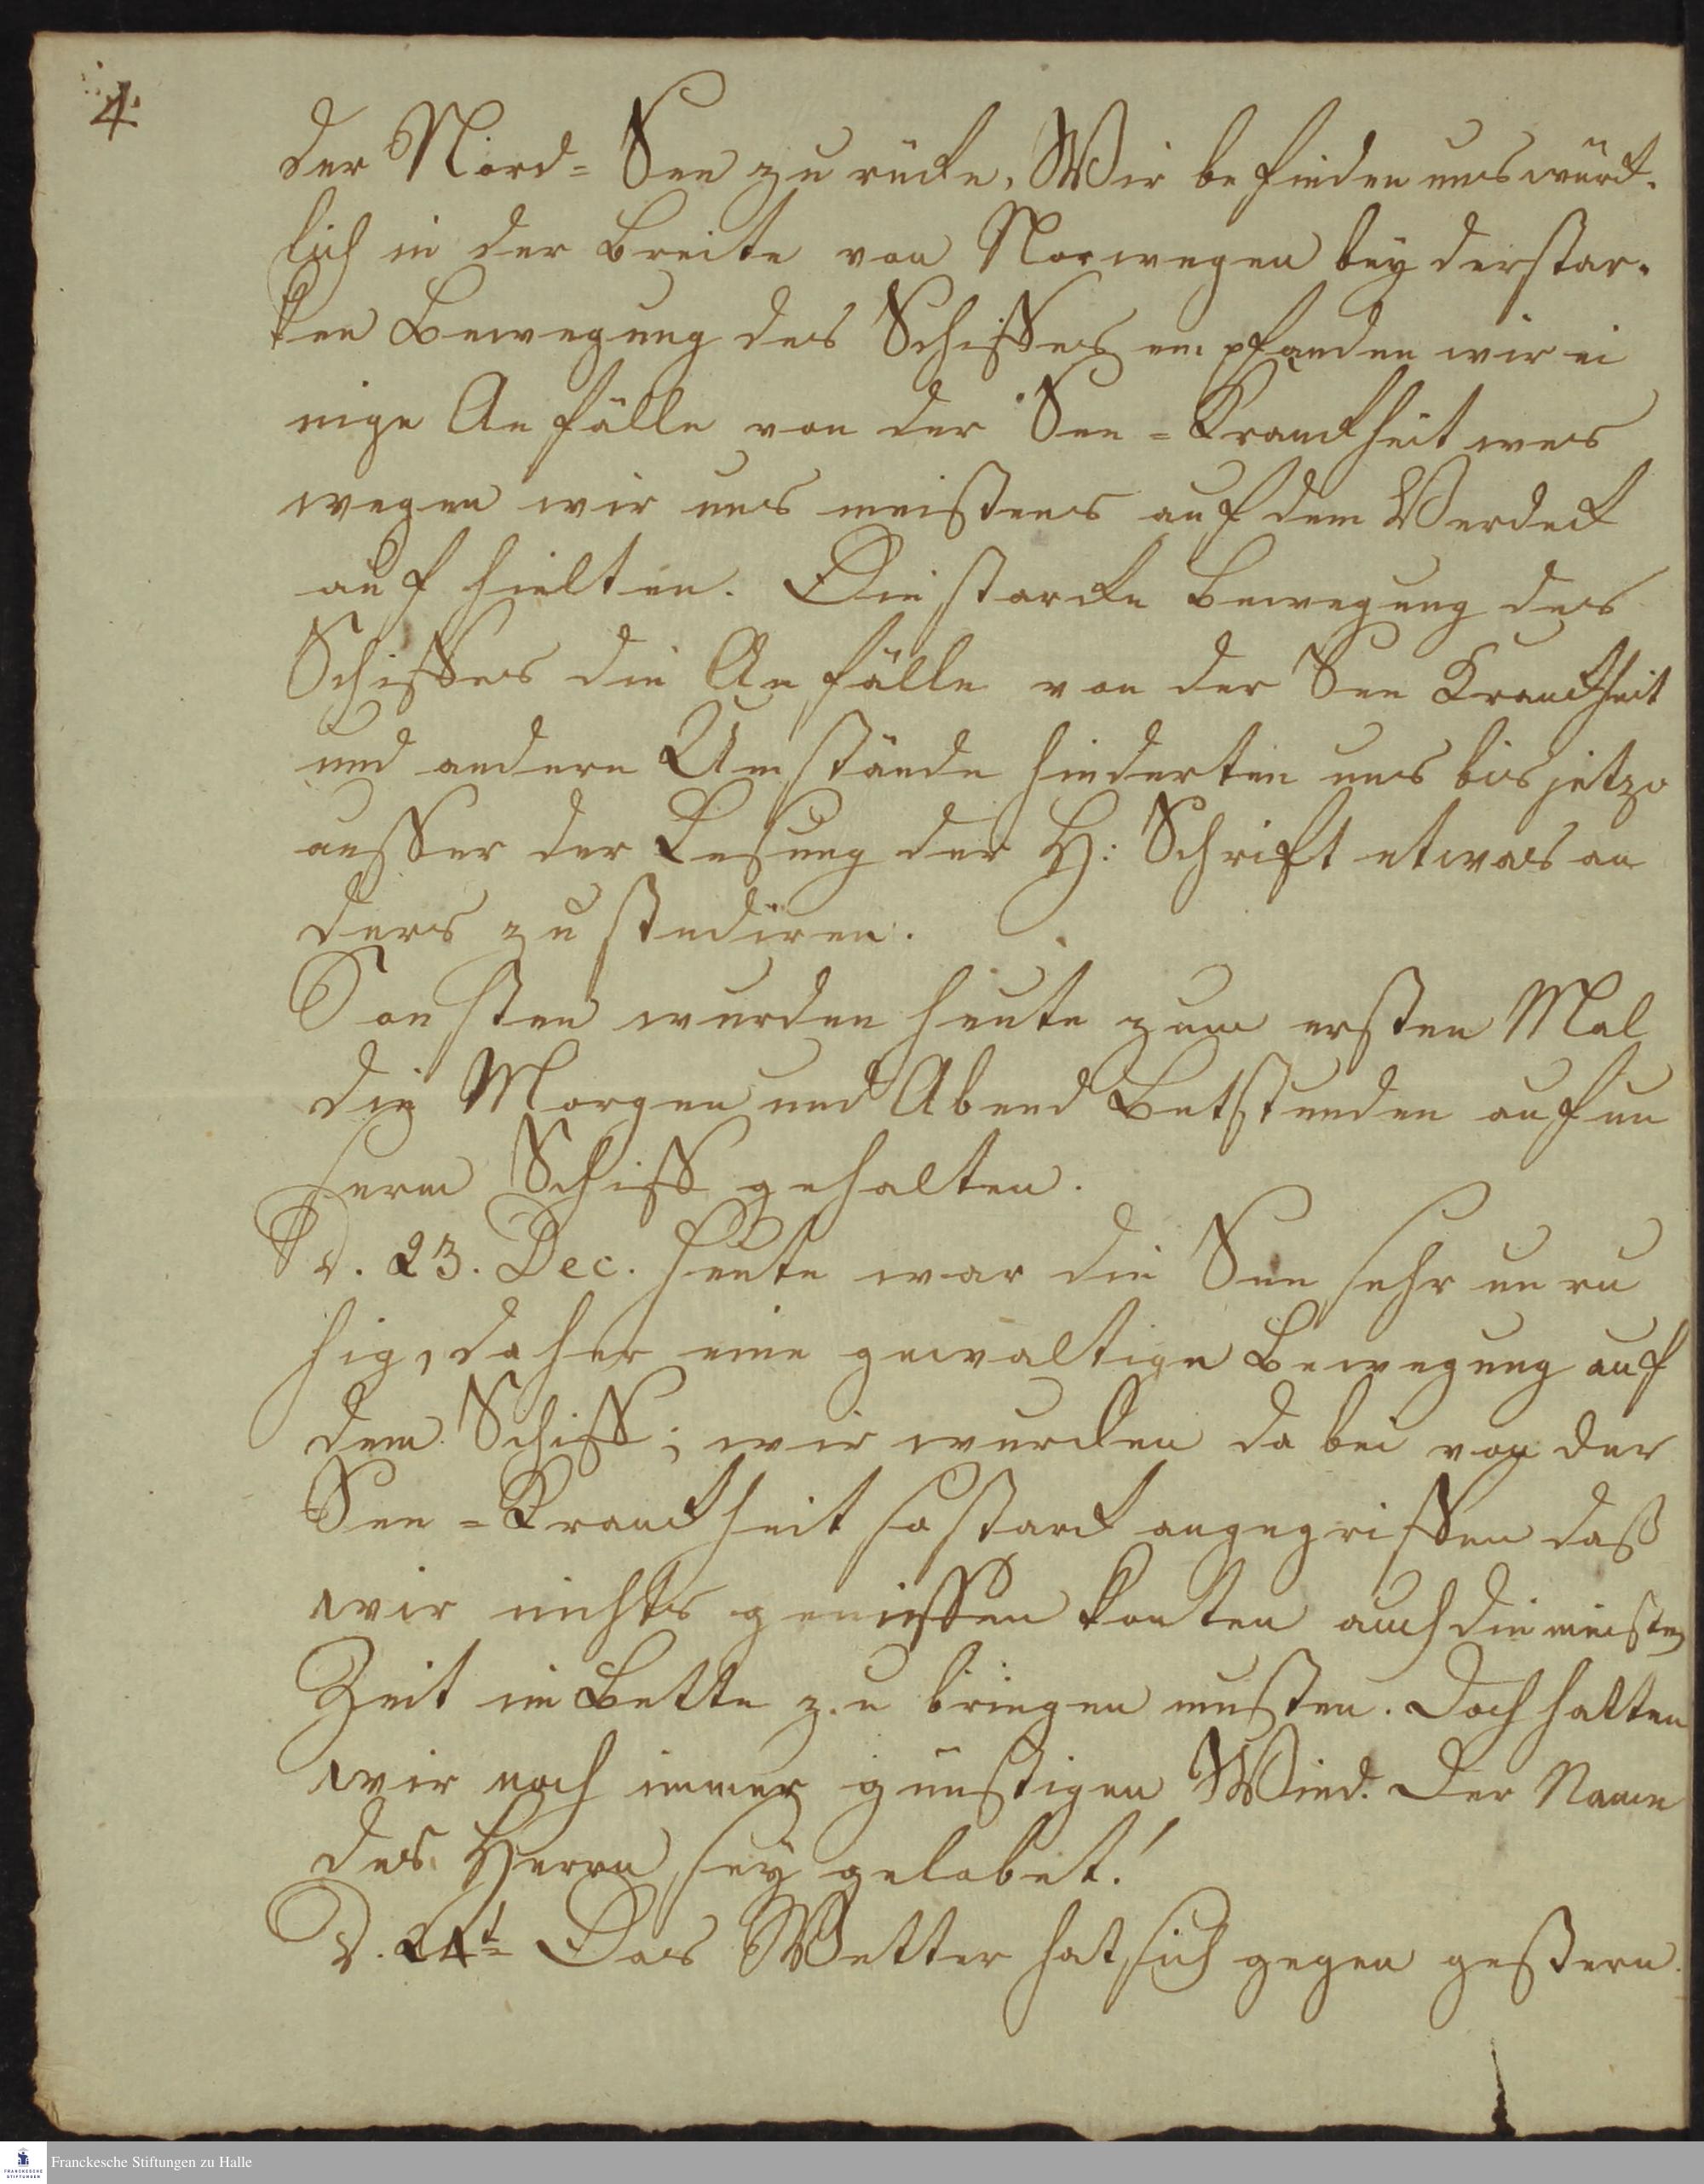 4.
der Nord= See zurücke, Wir befinden uns würk.
lich in der Breite von Norwegen bey der star.
ken Bewegung des Schiffes empfanden wir ei
nige Anfälle von der See=Kranckheit wes
wegen wir uns meistens auf dem Verdeck
auf hielten. Die starcke Bewegung des
Schiffes die Anfälle von der See Kranckheit
und andere Umstände hinderten uns bis jetzo
ausser der Lesung der H: Schrift etwas an
ders zu studiren.
Sonsten wurden heute zum ersten Mal
die Morgen und Abend Betstunden auf un
serm Schiff gehalten.
D. 23. Dec. heute war die See sehr unru
hig, daher eine gewaltige Bewegung auf
dem Schiff; wir wurden dabei von der
See=Kranckheit so starck angegriffen daß
wir nichts geniessen konten auch die meisten
Zeit im Bette zu bringen musten. Doch hatten
wir noch immer günstigen Wind. Der Name
des Herrn sey gelobet!
D. 24t Das Wetter hat sich gegen gestern
Franckesche Stiftungen zu Halle
FRANCKESCHE
STIFTUNGEN